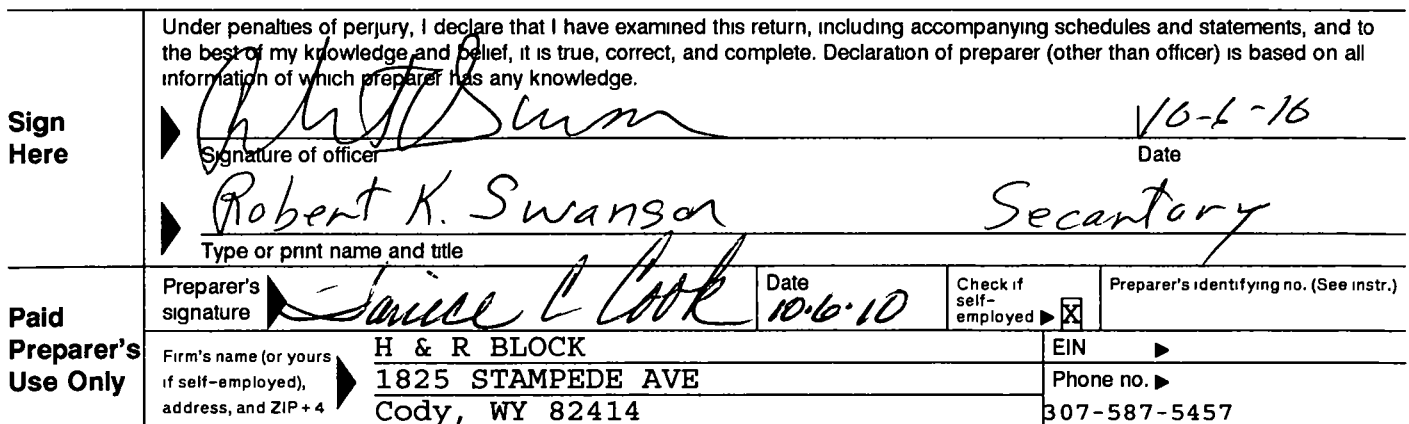 Under penalties of perjury, I declare that I have examined this return, including accompanying schedules and statements, and to
the best of my knowledge and belief, it is true, correct, and complete. Declaration of preparer (other than officer) is based on all
information of which preparer has any knowledge.
Sign
Here
10-6-10
Signature of officer
Date
Robert K. Swanson
Secantary
Type or print name and title
Paid
Preparer's
Use Only
Preparer's
signature
Janice C Cook
Date
10.6.10
Check if
self-
employed ▶ X
Preparer's identifying no. (See instr.)
Firm's name (or yours
if self-employed),
address, and ZIP + 4
H & R BLOCK
1825 STAMPEDE AVE
Cody, WY 82414
EIN ▶
Phone no. ▶
307-587-5457